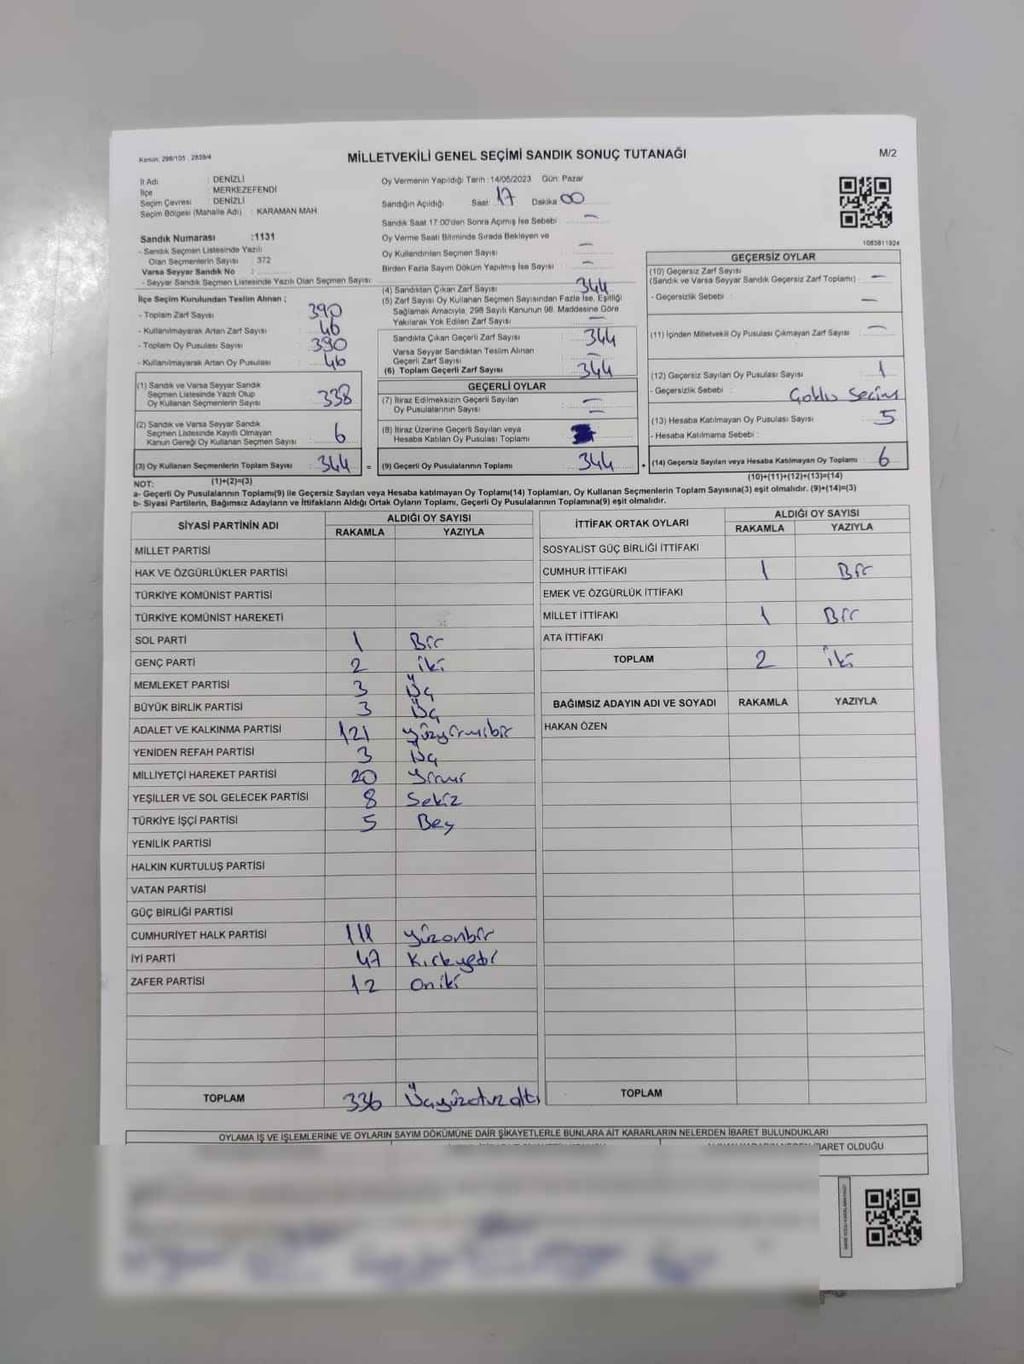 Kanun: 298/105 , 2839/4
MİLLETVEKİLİ GENEL SEÇİMİ SANDIK SONUÇ TUTANAĞI
M/2
İl Adı : DENİZLİ
İlçe : MERKEZEFENDİ
Seçim Çevresi : DENİZLİ
Seçim Bölgesi (Mahalle Adı) : KARAMAN MAH
Sandık Numarası :1131
- Sandık Seçmen Listesinde Yazılı
Olan Seçmenlerin Sayısı : 372
Varsa Seyyar Sandık No :
- Seyyar Sandık Seçmen Listesinde Yazılı Olan Seçmen Sayısı:
Oy Vermenin Yapıldığı Tarih :14/05/2023 Gün: Pazar
Sandığın Açıldığı Saat: 17 Dakika 00
Sandık Saat 17:00'den Sonra Açılmış İse Sebebi —
Oy Verme Saati Bitiminde Sırada Bekleyen ve
Oy Kullandırılan Seçmen Sayısı —
Birden Fazla Sayım Döküm Yapılmış İse Sayısı —
1083811924
İlçe Seçim Kurulundan Teslim Alınan ;
- Toplam Zarf Sayısı 390
- Kullanılmayarak Artan Zarf Sayısı 46
- Toplam Oy Pusulası Sayısı 390
- Kullanılmayarak Artan Oy Pusulası 46
(1) Sandık ve Varsa Seyyar Sandık
Seçmen Listesinde Yazılı Olup
Oy Kullanan Seçmenlerin Sayısı 338
(2) Sandık ve Varsa Seyyar Sandık
Seçmen Listesinde Kayıtlı Olmayan
Kanun Gereği Oy Kullanan Seçmen Sayısı 6
(3) Oy Kullanan Seçmenlerin Toplam Sayısı 344
(4) Sandıktan Çıkan Zarf Sayısı 344
(5) Zarf Sayısı Oy Kullanan Seçmen Sayısından Fazla İse, Eşitliği
Sağlamak Amacıyla, 298 Sayılı Kanunun 98. Maddesine Göre
Yakılarak Yok Edilen Zarf Sayısı —
Sandıkta Çıkan Geçerli Zarf Sayısı 344
Varsa Seyyar Sandıktan Teslim Alınan
Geçerli Zarf Sayısı —
(6) Toplam Geçerli Zarf Sayısı 344
GEÇERLİ OYLAR
(7) İtiraz Edilmeksizin Geçerli Sayılan
Oy Pusulalarının Sayısı —
(8) İtiraz Üzerine Geçerli Sayılan veya
Hesaba Katılan Oy Pusulası Toplamı
= (9) Geçerli Oy Pusulalarının Toplamı 344
GEÇERSİZ OYLAR
(10) Geçersiz Zarf Sayısı
(Sandık ve Varsa Seyyar Sandık Geçersiz Zarf Toplamı) —
- Geçersizlik Sebebi : —
(11) İçinden Milletvekili Oy Pusulası Çıkmayan Zarf Sayısı —
(12) Geçersiz Sayılan Oy Pusulası Sayısı 1
- Geçersizlik Sebebi : Çoklu Seçim
(13) Hesaba Katılmayan Oy Pusulası Sayısı 5
- Hesaba Katılmama Sebebi :
+ (14) Geçersiz Sayılan veya Hesaba Katılmayan Oy Toplamı 6
NOT: (1)+(2)=(3)
(10)+(11)+(12)+(13)=(14)
a- Geçerli Oy Pusulalarının Toplamı(9) ile Geçersiz Sayılan veya Hesaba katılmayan Oy Toplamı(14) Toplamları, Oy Kullanan Seçmenlerin Toplam Sayısına(3) eşit olmalıdır. (9)+(14)=(3)
b- Siyasi Partilerin, Bağımsız Adayların ve İttifakların Aldığı Ortak Oyların Toplamı, Geçerli Oy Pusulalarının Toplamına(9) eşit olmalıdır.
SİYASİ PARTİNİN ADI
ALDIĞI OY SAYISI
RAKAMLA YAZIYLA
MİLLET PARTİSİ
HAK VE ÖZGÜRLÜKLER PARTİSİ
TÜRKİYE KOMÜNİST PARTİSİ
TÜRKİYE KOMÜNİST HAREKETİ
SOL PARTİ 1 Bir
GENÇ PARTİ 2 iki
MEMLEKET PARTİSİ 3 Üç
BÜYÜK BİRLİK PARTİSİ 3 Üç
ADALET VE KALKINMA PARTİSİ 121 yüzyirmibir
YENİDEN REFAH PARTİSİ 3 Üç
MİLLİYETÇİ HAREKET PARTİSİ 20 yirmi
YEŞİLLER VE SOL GELECEK PARTİSİ 8 Sekiz
TÜRKİYE İŞÇİ PARTİSİ 5 Beş
YENİLİK PARTİSİ
HALKIN KURTULUŞ PARTİSİ
VATAN PARTİSİ
GÜÇ BİRLİĞİ PARTİSİ
CUMHURİYET HALK PARTİSİ 111 yüzonbir
İYİ PARTİ 47 Kırkyedi
ZAFER PARTİSİ 12 oniki
TOPLAM 336 Üçyüzotuzaltı
İTTİFAK ORTAK OYLARI
ALDIĞI OY SAYISI
RAKAMLA YAZIYLA
SOSYALİST GÜÇ BİRLİĞİ İTTİFAKI
CUMHUR İTTİFAKI 1 Bir
EMEK VE ÖZGÜRLÜK İTTİFAKI
MİLLET İTTİFAKI 1 Bir
ATA İTTİFAKI
TOPLAM 2 iki
BAĞIMSIZ ADAYIN ADI VE SOYADI RAKAMLA YAZIYLA
HAKAN ÖZEN
TOPLAM
OYLAMA İŞ VE İŞLEMLERİNE VE OYLARIN SAYIM DÖKÜMÜNE DAİR ŞİKAYETLERLE BUNLARA AİT KARARLARIN NELERDEN İBARET BULUNDUKLARI
İBARET OLDUĞU